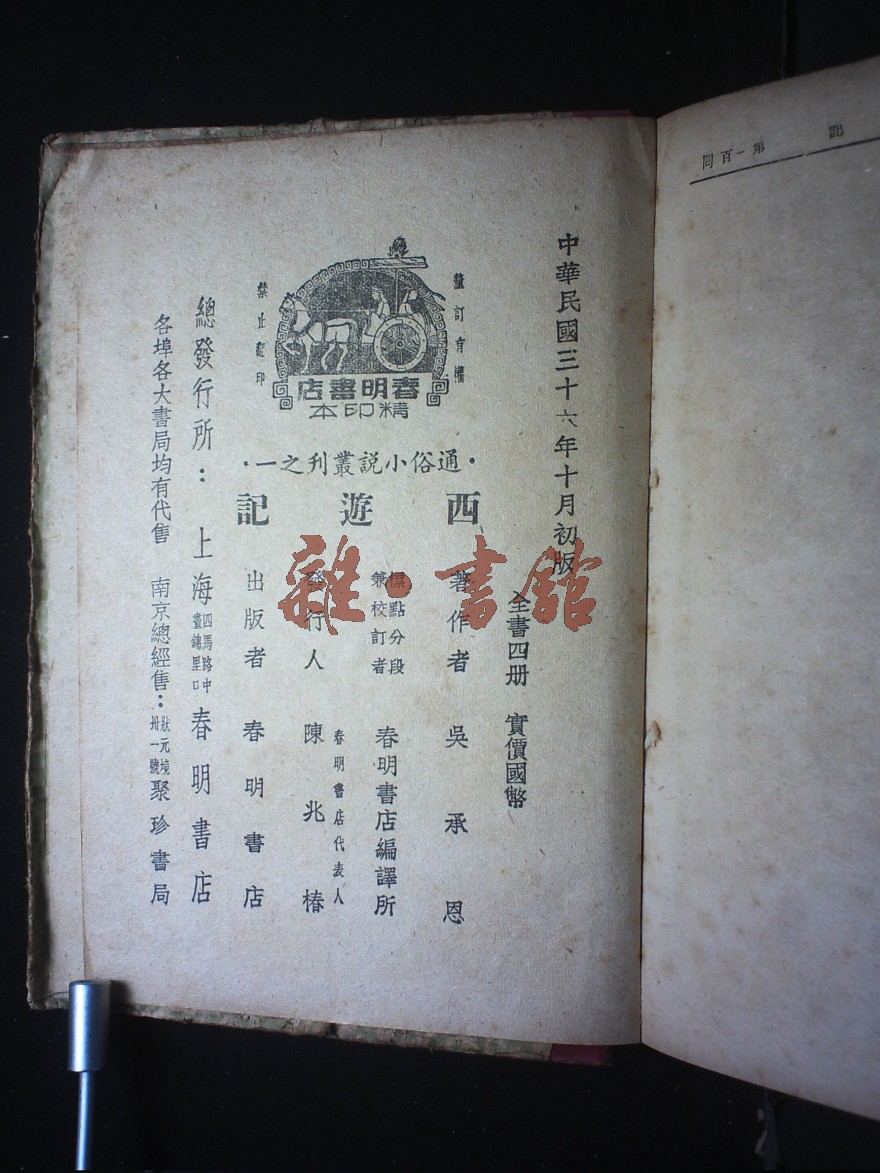 記　第一百回
中華民國三十六年十月初版
全書四册　實價國幣
有權
禁止翻印
春明書店
精印本
·通俗小說叢刊之一·
西遊記
著作者　吳承恩
標點分段
兼校訂者　春明書店編譯所
春明書店代表人
發行人　陳兆椿
出版者　春明書店
總發行所：上海四馬路中畫錦里口春明書店
各埠各大書局均有代售　南京總經售：狀元境卅一號聚珍書局
雜·書館